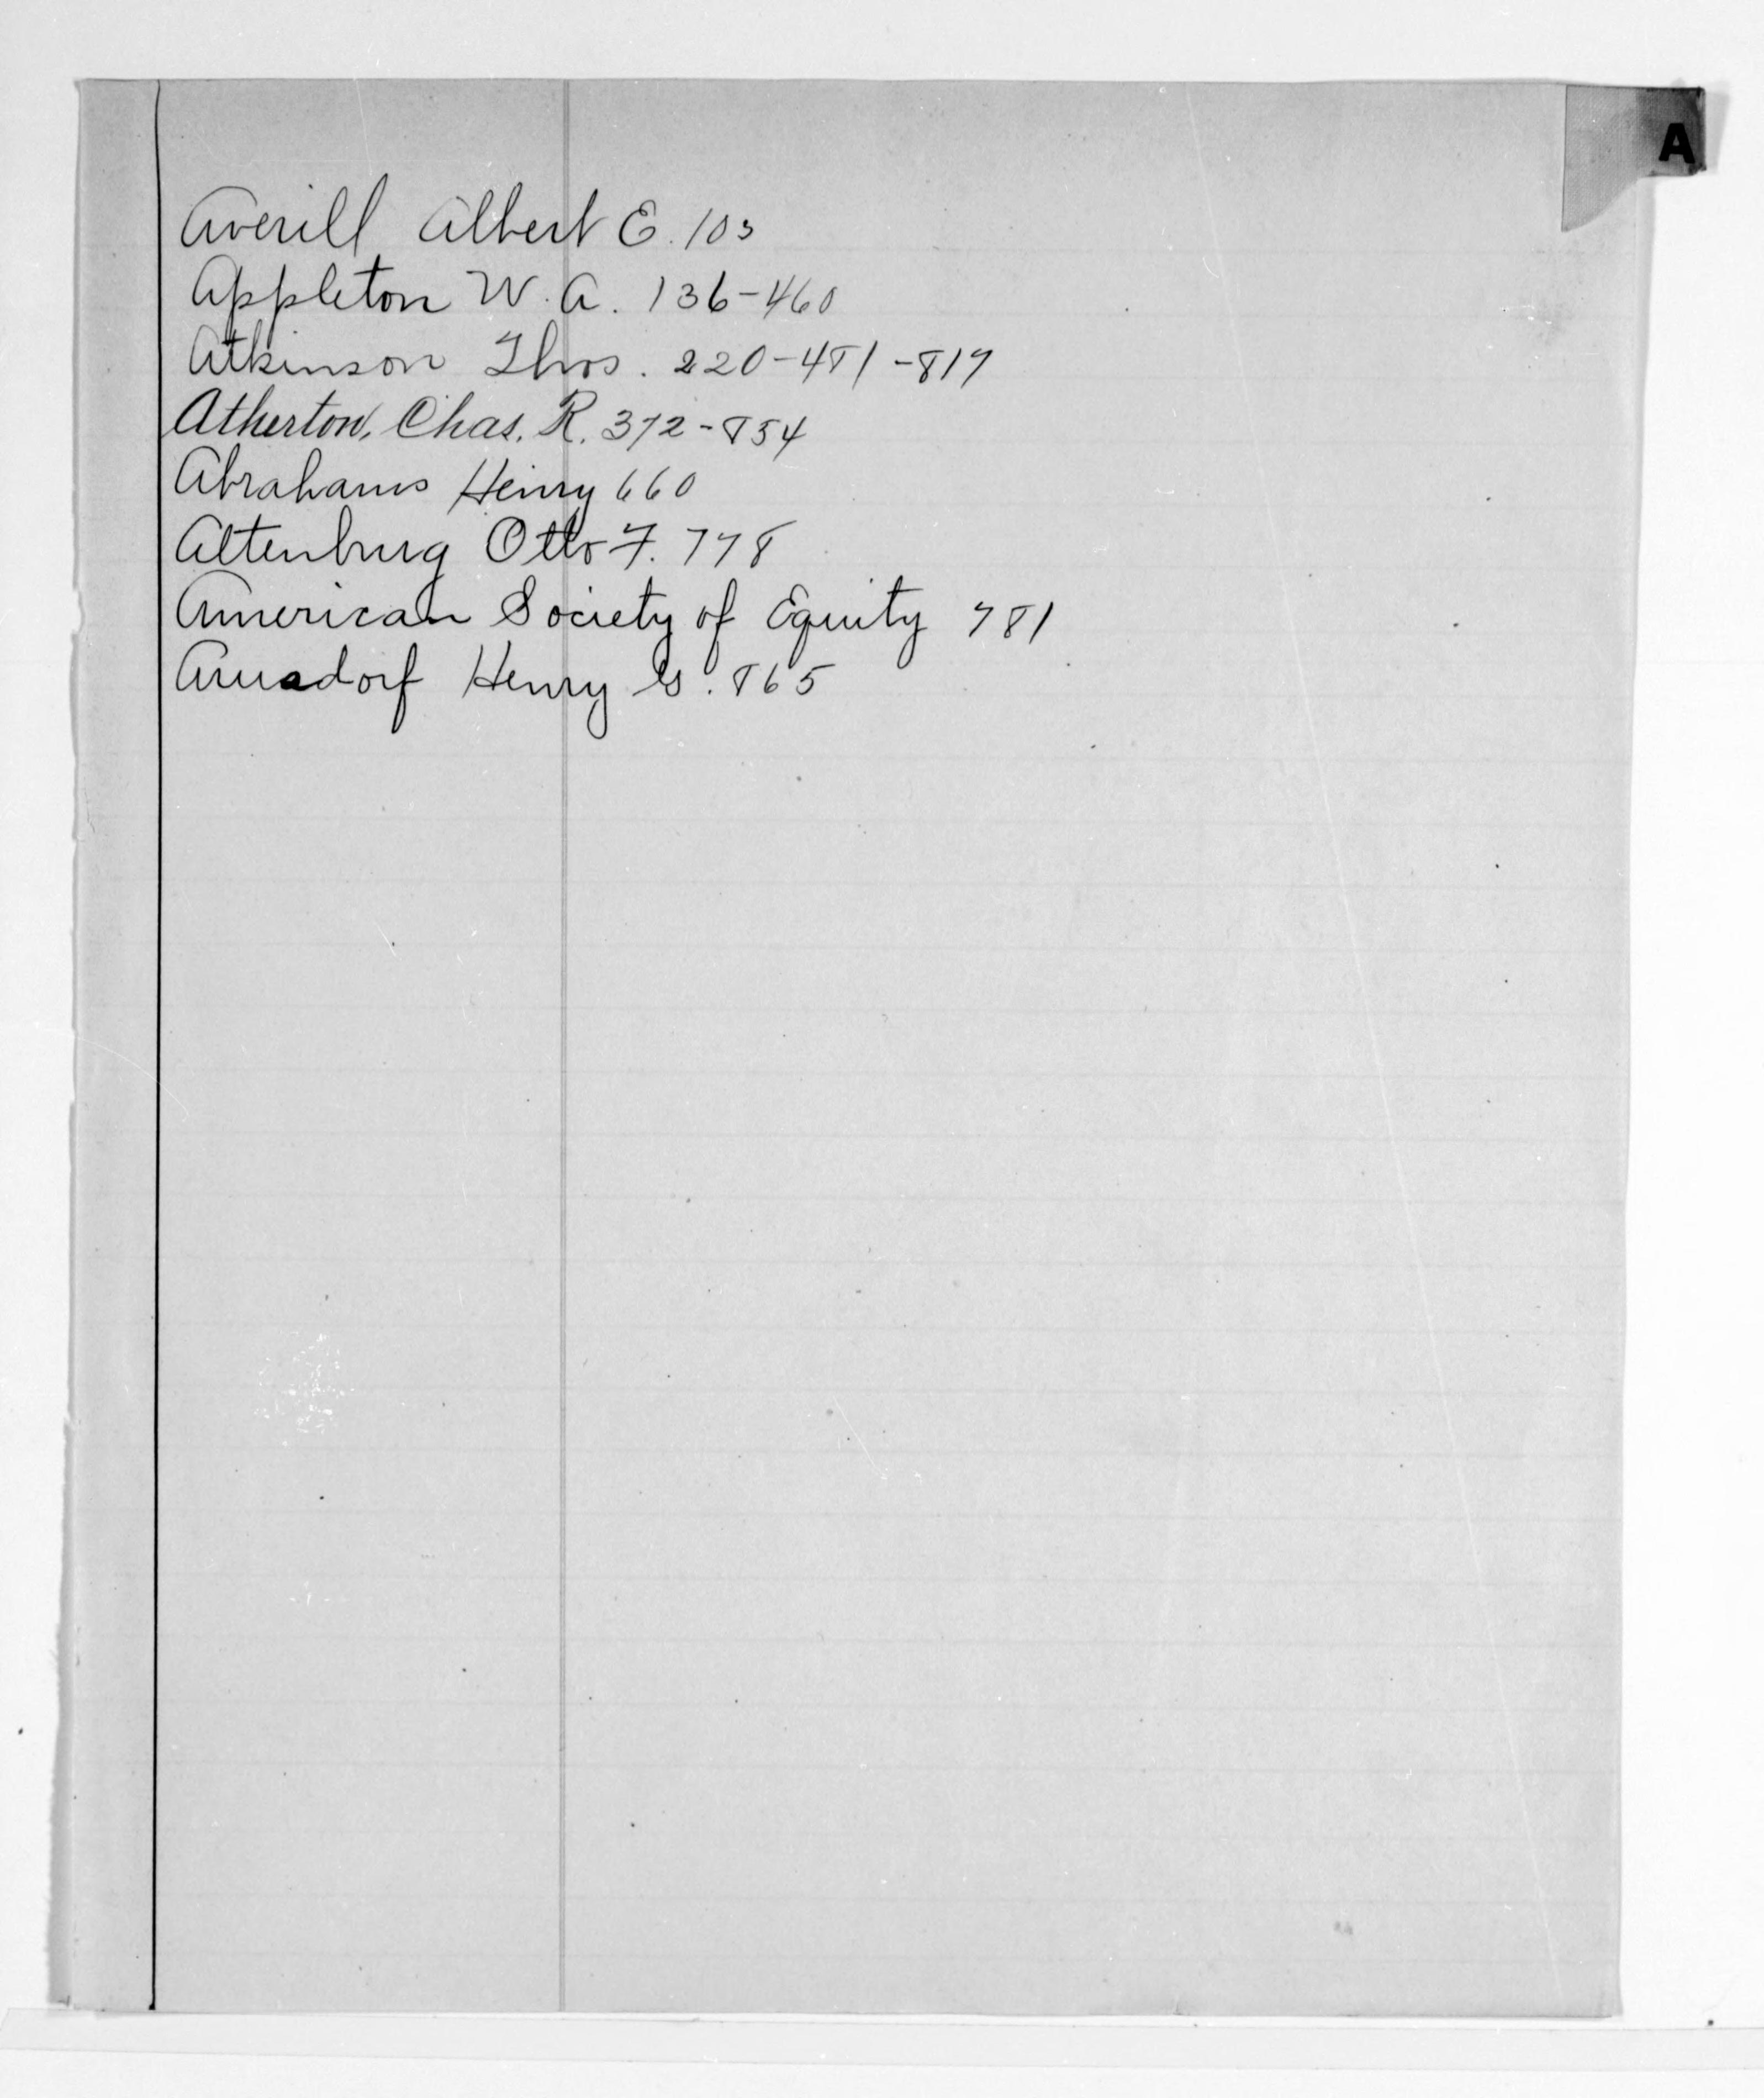 A
Averill Albert E. 103
Appleton W. A. 136-460
Atkinson Thos. 220-481-817
Atherton, Chas. R. 372-854
Abrahams Henry 660
Altenburg Otto F. 778
American Society of Equity 781
Henry 865